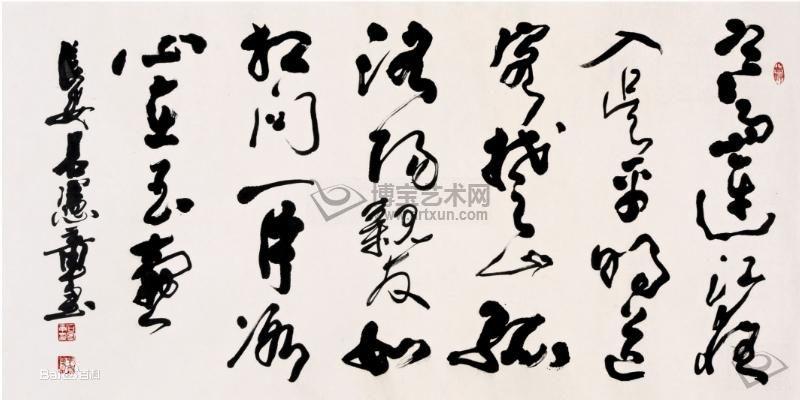 寒雨連江夜
入吴平明送
客楚山孤
洛陽親友如
相问一片冰
心在玉壺
長安石憲章書
博宝艺术网
artxun.com
Bai百科